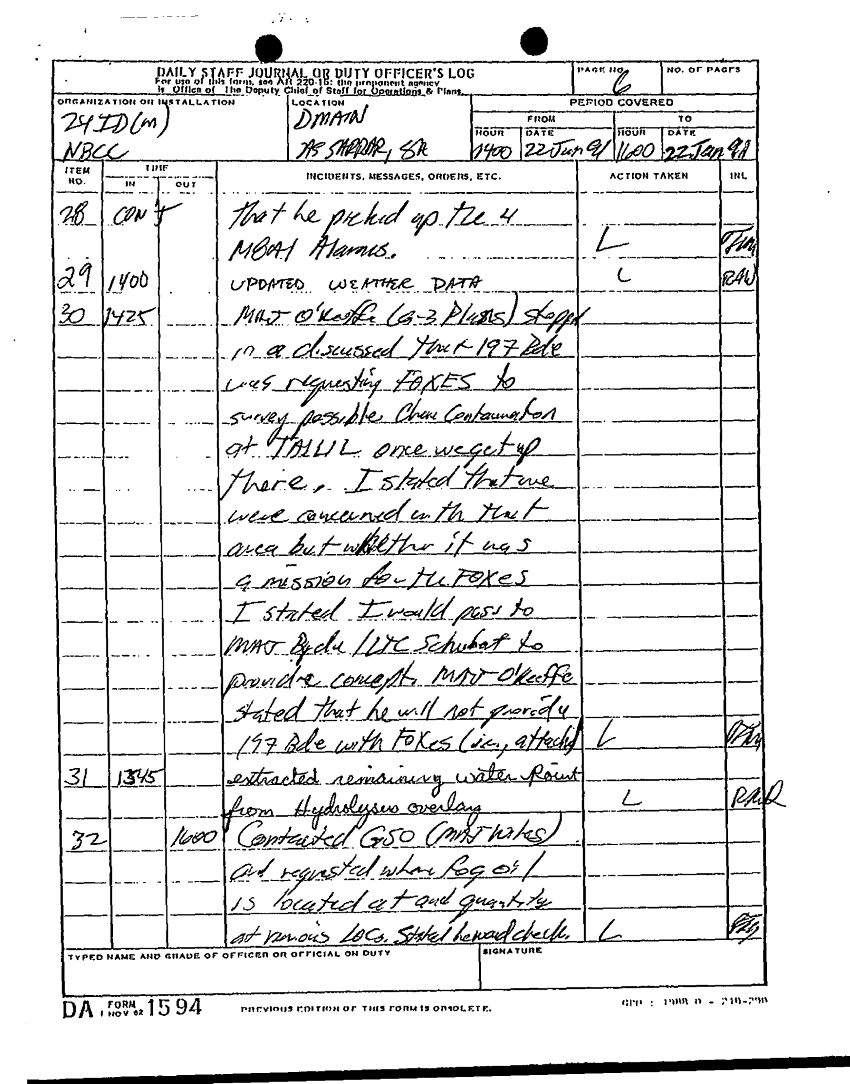 DAILY STAFF JOURNAL OR DUTY OFFICER'S LOG
For use of this form, see AR 220-15; the proponent agency
is Office of The Deputy Chief of Staff for Operations & Plans.
PAGE NO.
6
NO. OF PAGES
ORGANIZATION OR INSTALLATION
24 ID(M)
NBCC
LOCATION
DMAIN
AS SARRAR, SA
PERIOD COVERED
FROM
TO
HOUR DATE HOUR DATE
0400 22 Jan 91 1600 22 Jan 91
ITEM NO.
TIME
IN OUT
INCIDENTS, MESSAGES, ORDERS, ETC.
ACTION TAKEN
INL
28 CON'T that he picked up the 4
M8A1 Alarms. L
29 1400 UPDATED WEATHER DATA L RAW
30 1425 MAJ O'Keeffe (G-3 Plans) stopped
in a discussed that 197 Bde
was requesting FOXES to
survey possible Chem Contamination
at TALLIL once we get up
there. I stated that we
were concerned with that
area but whether it was
a mission for the FOXES
I stated I would pass to
MAJ / LTC Schubat to
provide concept. MAJ O'Keeffe
stated that he will not provide
197 Bde with FOXES (i.e., attached) L
31 1345 extracted remaining water Point
from Hydrolysis overlay L
32 1600 Contacted GSO (MAJ)
and requested where fog oil
is located at and quantity
at various LOCs. Stated he would check. L
TYPED NAME AND GRADE OF OFFICER OR OFFICIAL ON DUTY
SIGNATURE
DA FORM 1 NOV 62 1594
PREVIOUS EDITION OF THIS FORM IS OBSOLETE.